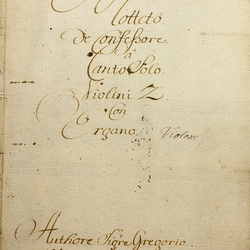 Motteto
De Confessore.
â
Canto Solo.
Violini 2.
Con
Organo. Violone
Authore Sigre Gregorio